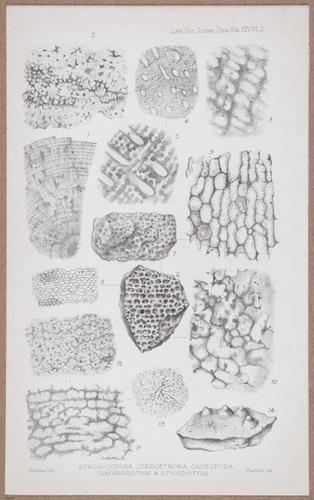 Linn. Soc. Journ. Zool. Vol. XIV. Pl. 2.
2
4
3
1
5
9
7
8
6
12
10
13
11
14
STROMATOPORA, COENOSTROMA, CAUNOPORA,
CLATHRODICTYON & STYLODICTYON